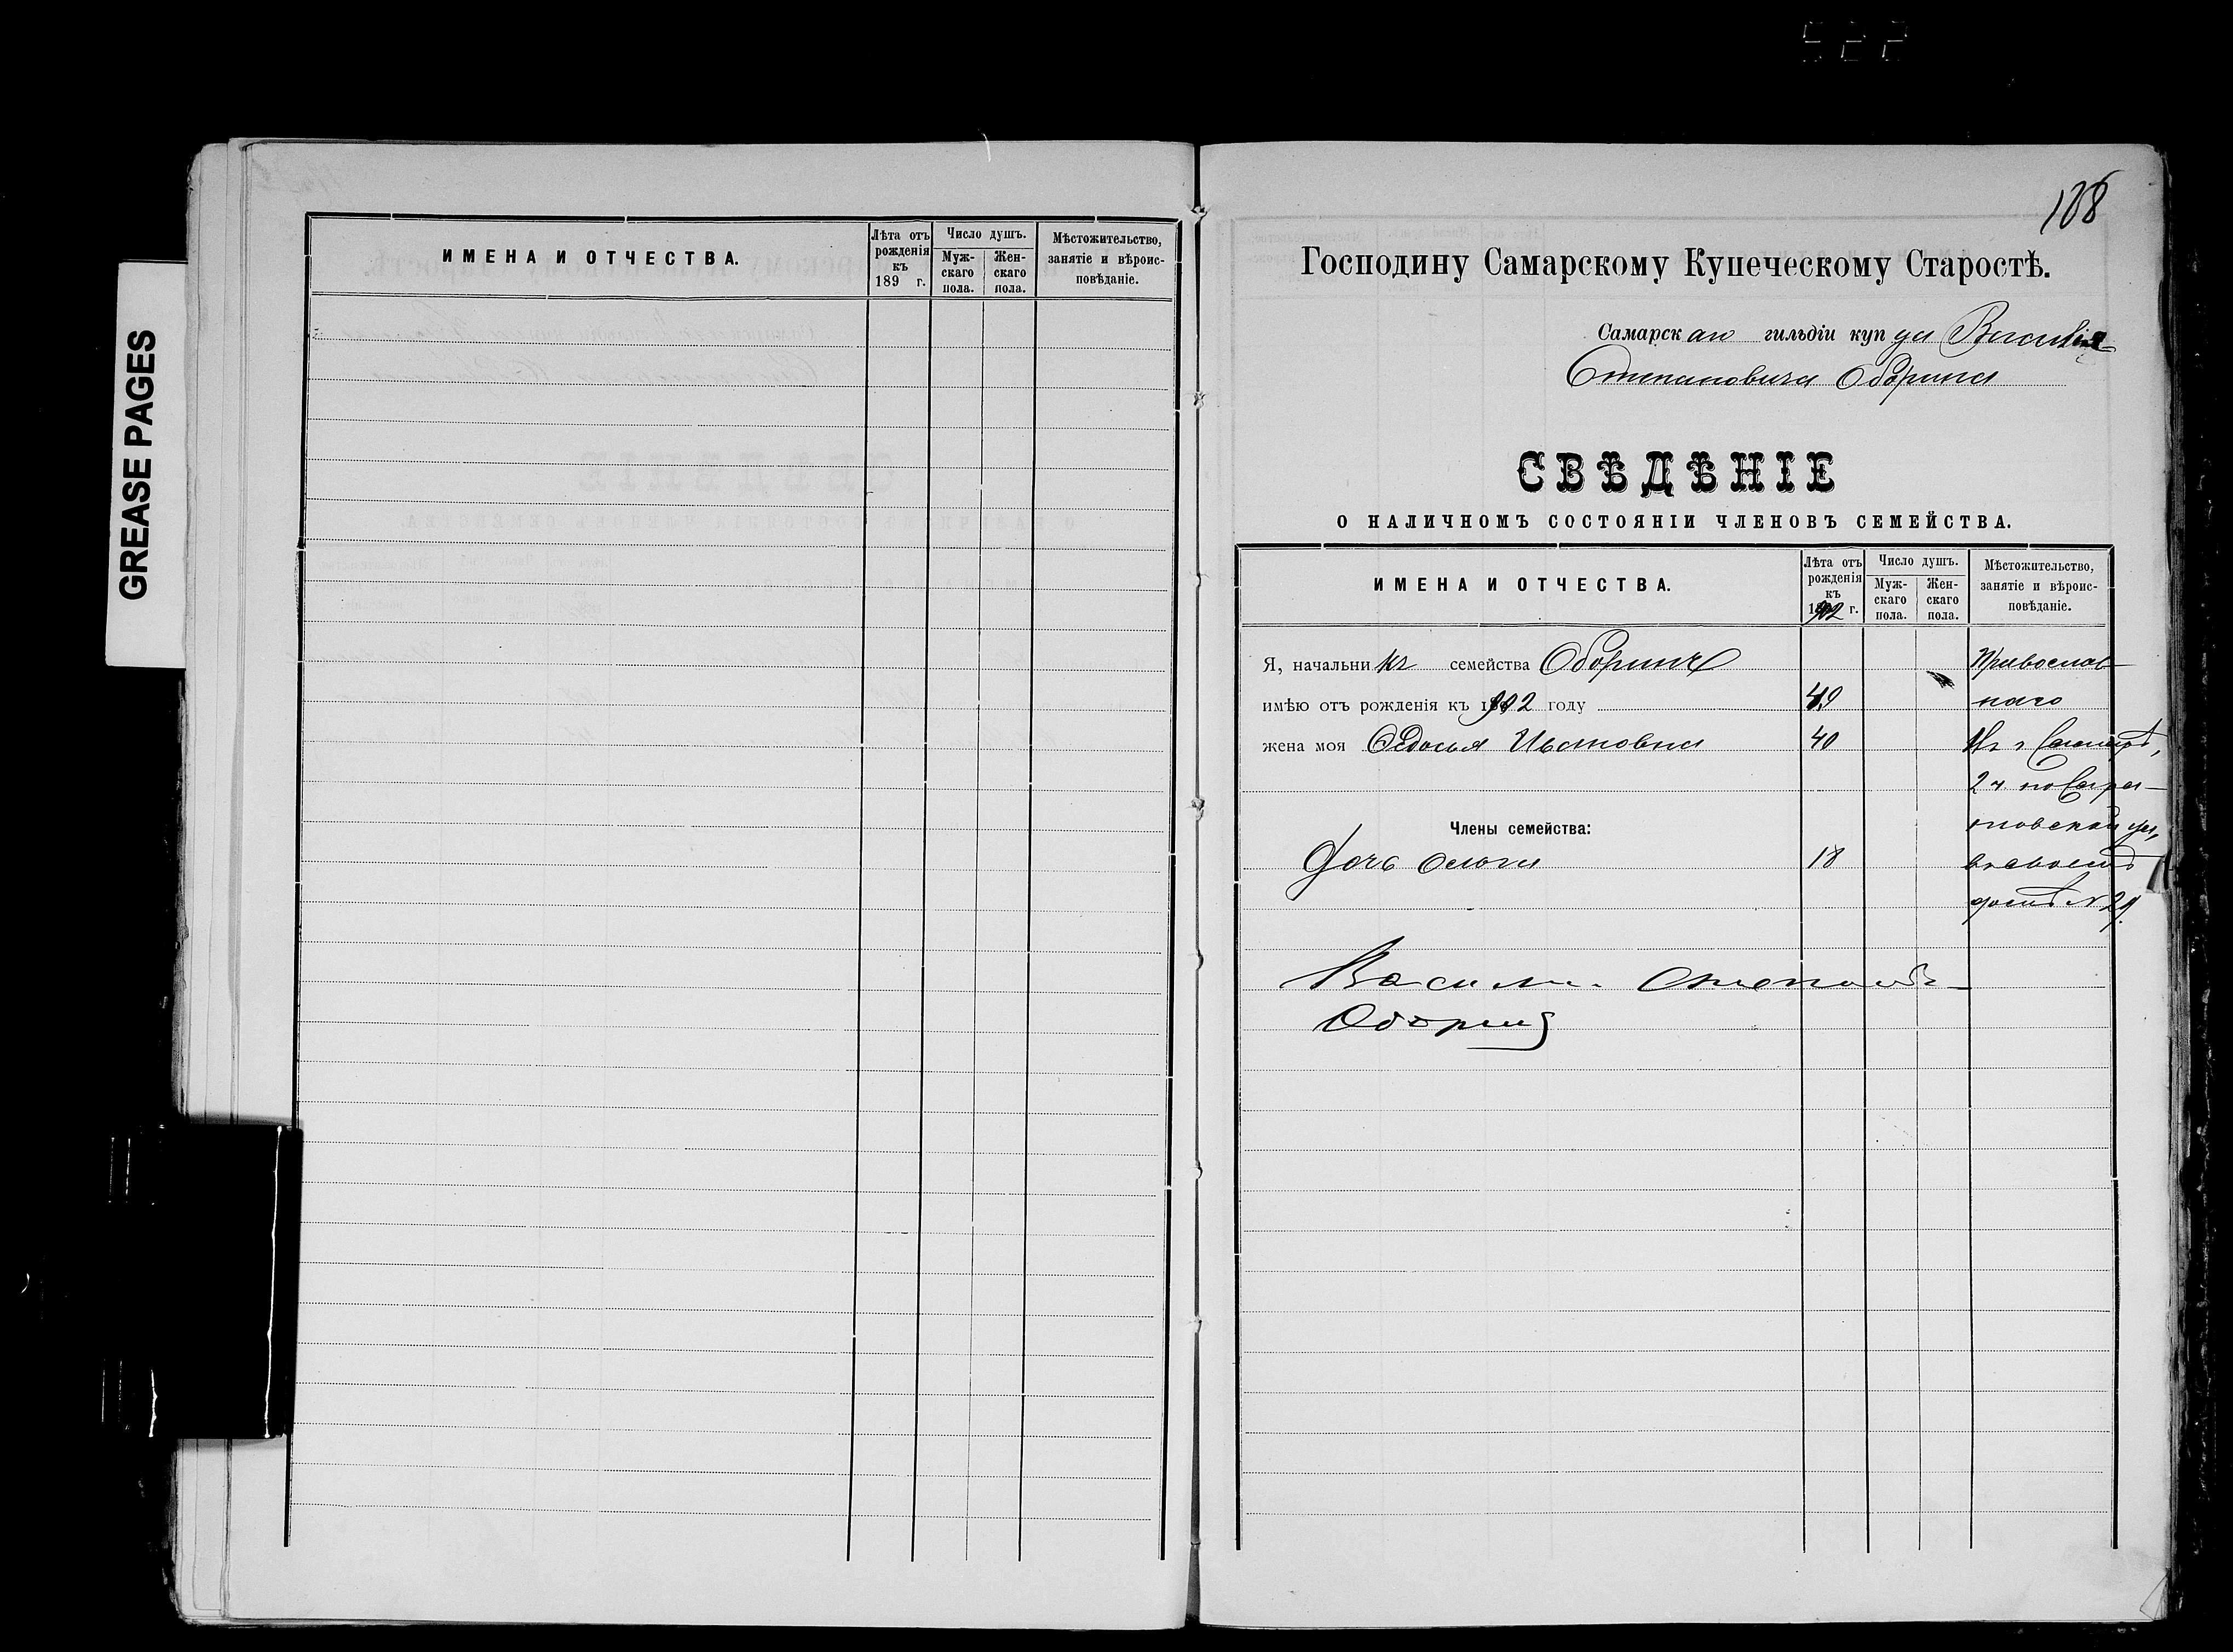 522
GREASE PAGES
ИМЕНА И ОТЧЕСТВА.
Лѣта отъ рожденія къ 189 г.
Число душъ.
Муж-скаго пола.
Жен-скаго пола.
Мѣстожительство, занятіе и вѣроис-повѣданіе.
108
Господину Самарскому Купеческому Старостѣ.
Самарскаго гильдіи купца Василія
Степановича Оборина
СВѢДѢНІЕ
О НАЛИЧНОМЪ СОСТОЯНІИ ЧЛЕНОВЪ СЕМЕЙСТВА.
ИМЕНА И ОТЧЕСТВА.
Лѣта отъ рожденія къ 1902 г.
Число душъ.
Муж-скаго пола.
Жен-скаго пола.
Мѣстожительство, занятіе и вѣроис-повѣданіе.
Я, начальникъ семейства Оборинъ Православ-
имѣю отъ рожденія къ 1902 году 49 наго
жена моя Федосья Ивановна 40 Въ г Самарѣ,
2 ч. по Сара-
Члены семейства: товской ул,
Дочь Ольга 18 въ своемъ
домѣ № 29.
Василий Степановъ
Оборинъ